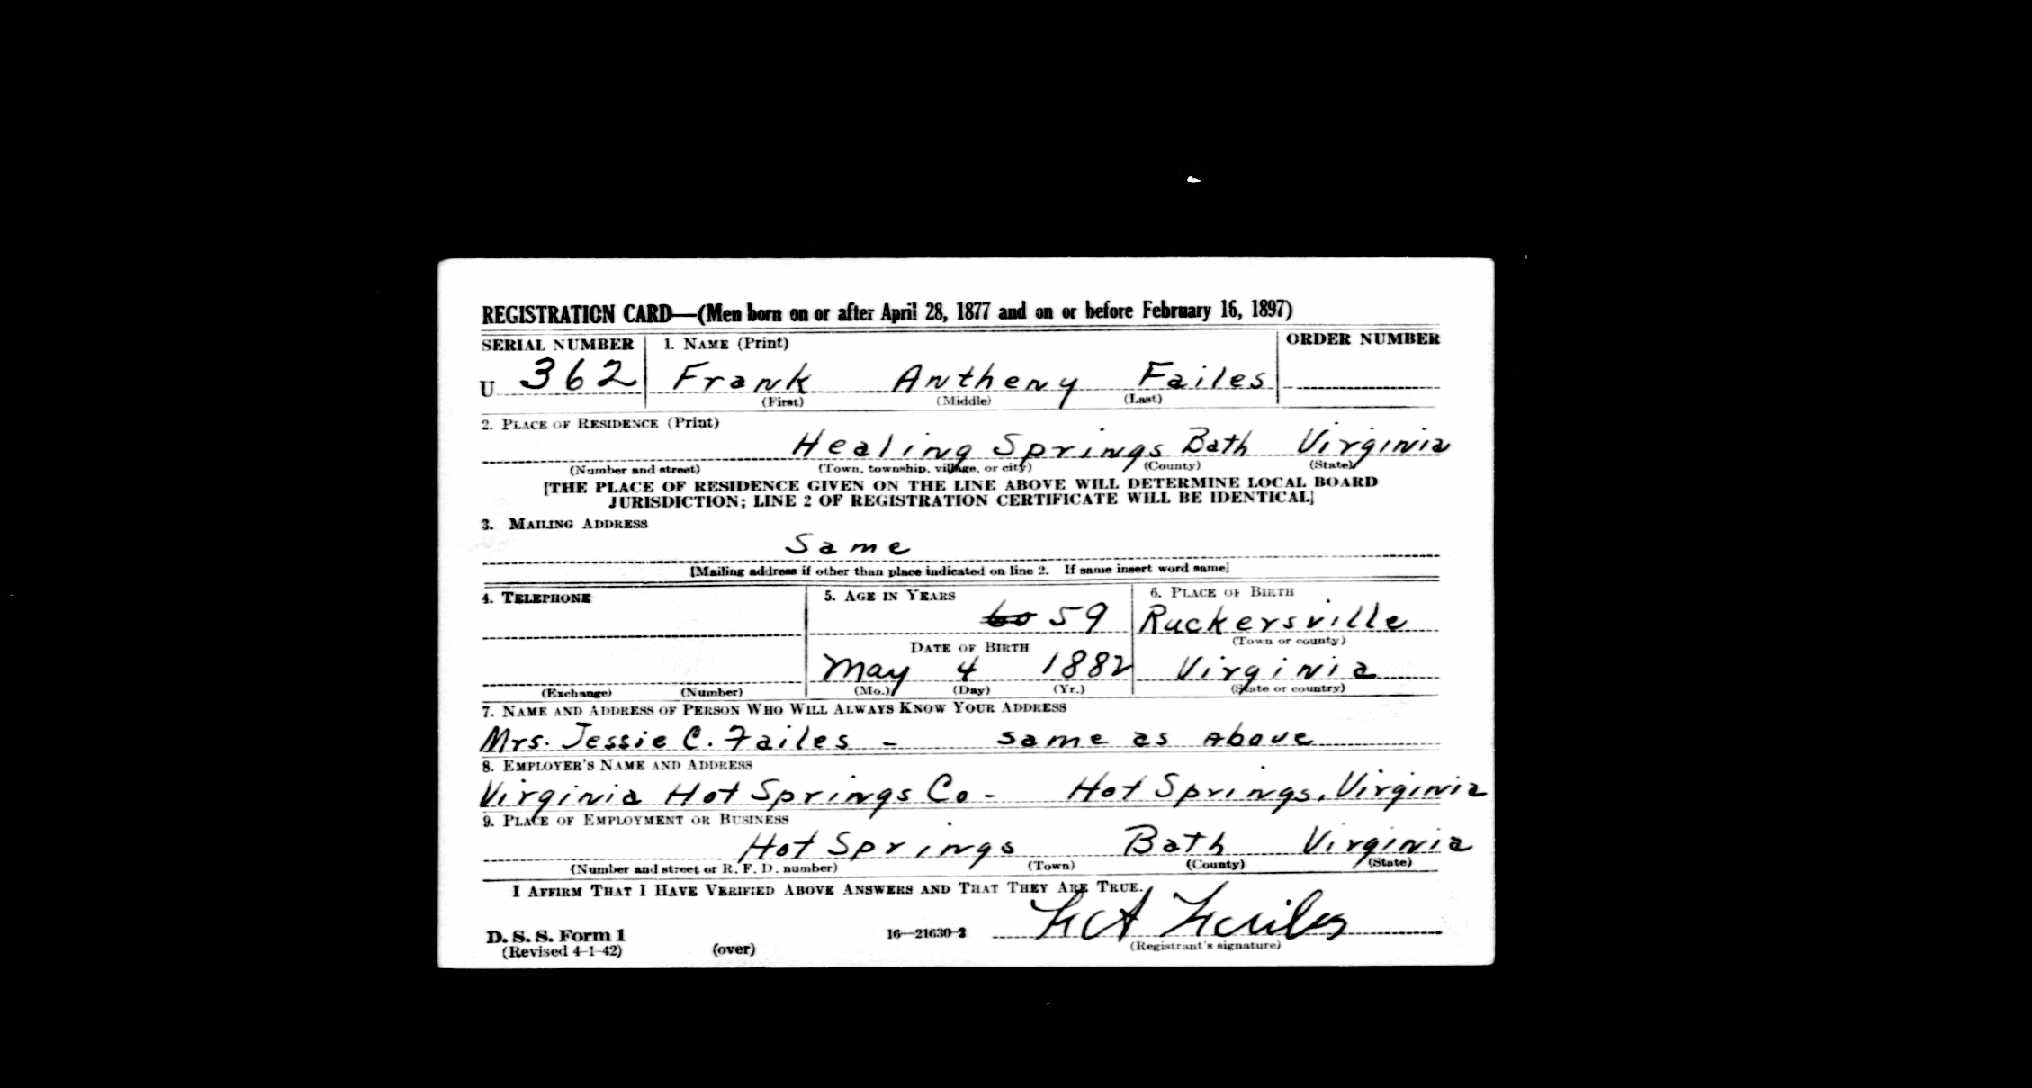 REGISTRATION CARD—(Men born on or after April 28, 1877 and on or before February 16, 1897)
SERIAL NUMBER 1. NAME (Print) ORDER NUMBER
U 362 Frank Antheny Failes
(First) (Middle) (Last)
2. PLACE OF RESIDENCE (Print)
Healing Springs Bath Virginia
(Number and street) (Town, township, village, or city) (County) (State)
[THE PLACE OF RESIDENCE GIVEN ON THE LINE ABOVE WILL DETERMINE LOCAL BOARD
JURISDICTION; LINE 2 OF REGISTRATION CERTIFICATE WILL BE IDENTICAL]
3. MAILING ADDRESS
Same
[Mailing address if other than place indicated on line 2. If same insert word same]
4. TELEPHONE 5. AGE IN YEARS 6. PLACE OF BIRTH
60 59 Ruckersville
DATE OF BIRTH (Town or county)
May 4 1882 Virginia
(Exchange) (Number) (Mo.) (Day) (Yr.) (State or country)
7. NAME AND ADDRESS OF PERSON WHO WILL ALWAYS KNOW YOUR ADDRESS
Mrs. Jessie C. Failes - same as above
8. EMPLOYER'S NAME AND ADDRESS
Virginia Hot Springs Co - Hot Springs, Virginia
9. PLACE OF EMPLOYMENT OR BUSINESS
Hot Springs Bath Virginia
(Number and street or R. F. D. number) (Town) (County) (State)
I AFFIRM THAT I HAVE VERIFIED ABOVE ANSWERS AND THAT THEY ARE TRUE.
F A Failes
D. S. S. Form 1 16—21630-2 (Registrant's signature)
(Revised 4-1-42) (over)